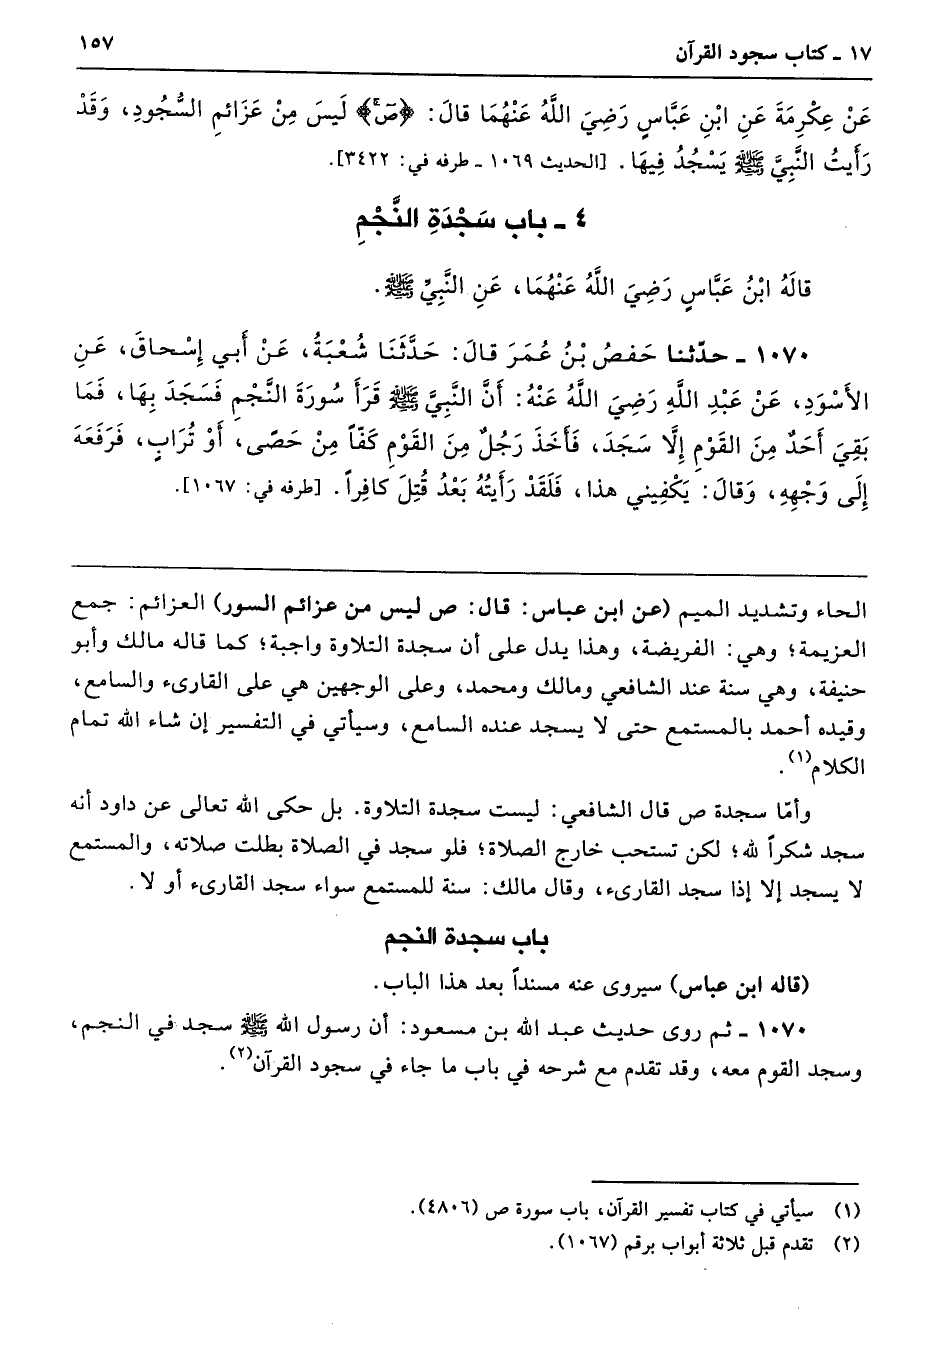 ١٧ ـ كتاب سجود القرآن
١٥٧
عَنْ عِكْرِمَةَ عَنِ ابْنِ عَبَّاسٍ رَضِيَ اللَّهُ عَنْهُمَا قالَ: ﴿صَّ﴾ لَيسَ مِنْ عَزَائمِ السُّجُودِ، وَقَدْ
رَأَيتُ النَّبِيَّ ﷺ يَسْجُدُ فِيهَا. [الحديث ١٠٦٩ ـ طرفه في: ٣٤٢٢].
٤ ـ باب سَجْدَةِ النَّجْمِ
قالَهُ ابْنُ عَبَّاسٍ رَضِيَ اللَّهُ عَنْهُمَا، عَنِ النَّبِيِّ ﷺ.
١٠٧٠ ـ حدّثنا حَفصُ بْنُ عُمَرَ قالَ: حَدَّثَنَا شُعْبَةُ، عَنْ أَبي إِسْحاقَ، عَنِ
الأَسْوَدِ، عَنْ عَبْدِ اللَّهِ رَضِيَ اللَّهُ عَنْهُ: أَنَّ النَّبِيَّ ﷺ قَرَأَ سُورَةَ النَّجْمِ فَسَجَدَ بِهَا، فَمَا
بَقِيَ أَحَدٌ مِنَ القَوْمِ إِلَّا سَجَدَ، فَأَخَذَ رَجُلٌ مِنَ القَوْمِ كَفّاً مِنْ حَصًى، أَوْ تُرَابٍ، فَرَفَعَهُ
إِلَى وَجْهِهِ، وَقالَ: يَكْفِيني هذا، فَلَقَدْ رَأَيتُهُ بَعْدُ قُتِلَ كافِراً. [طرفه في: ١٠٦٧].
الحاء وتشديد الميم (عن ابن عباس: قال: ص ليس من عزائم السور) العزائم: جمع
العزيمة؛ وهي: الفريضة، وهذا يدل على أن سجدة التلاوة واجبة؛ كما قاله مالك وأبو
حنيفة، وهي سنة عند الشافعي ومالك ومحمد، وعلى الوجهين هي على القارىء والسامع،
وقيده أحمد بالمستمع حتى لا يسجد عنده السامع، وسيأتي في التفسير إن شاء الله تمام
الكلام(١).
وأمّا سجدة ص قال الشافعي: ليست سجدة التلاوة. بل حكى الله تعالى عن داود أنه
سجد شكراً لله؛ لكن تستحب خارج الصلاة؛ فلو سجد في الصلاة بطلت صلاته، والمستمع
لا يسجد إلا إذا سجد القارىء، وقال مالك: سنة للمستمع سواء سجد القارىء أو لا.
باب سجدة النجم
(قاله ابن عباس) سيروى عنه مسنداً بعد هذا الباب.
١٠٧٠ ـ ثم روى حديث عبد الله بن مسعود: أن رسول الله ﷺ سجد في النجم،
وسجد القوم معه، وقد تقدم مع شرحه في باب ما جاء في سجود القرآن(٢).
(١) سيأتي في كتاب تفسير القرآن، باب سورة ص (٤٨٠٦).
(٢) تقدم قبل ثلاثة أبواب برقم (١٠٦٧).